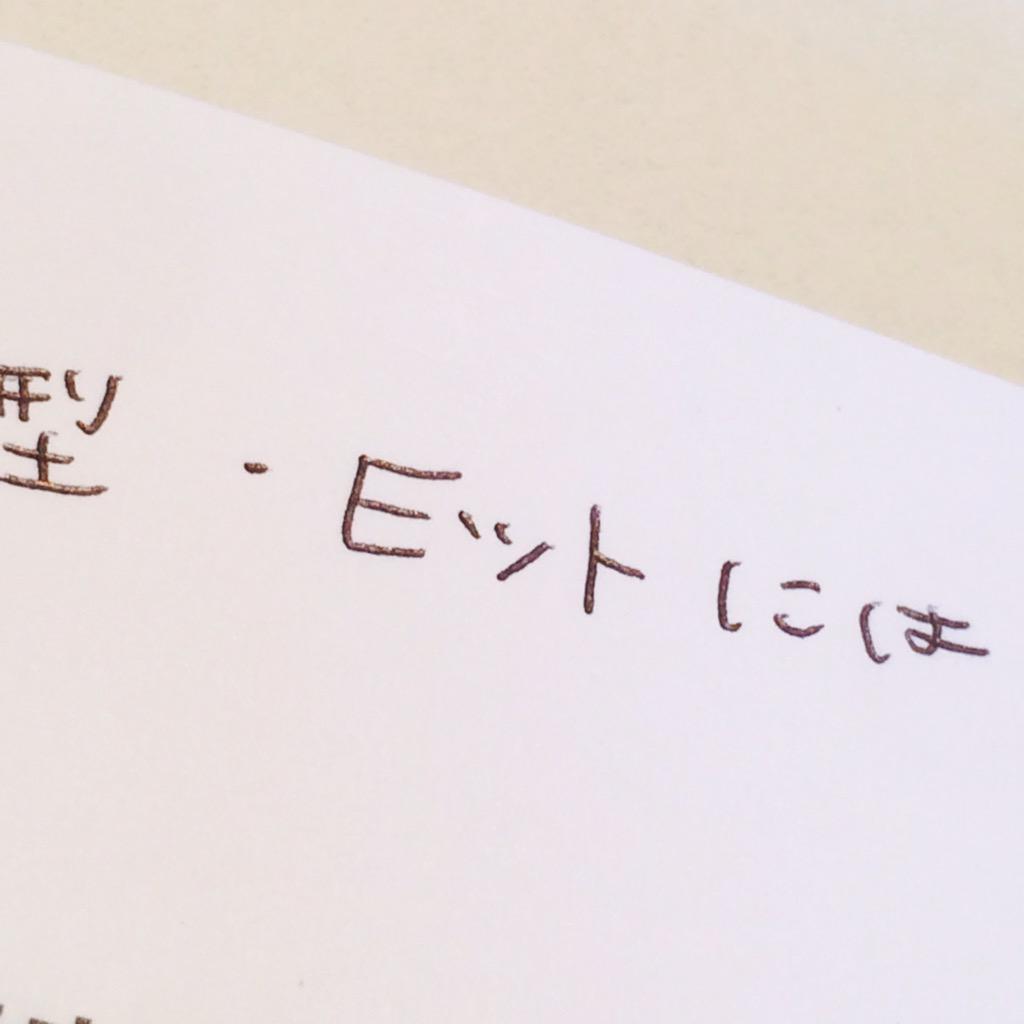 型・Eットには